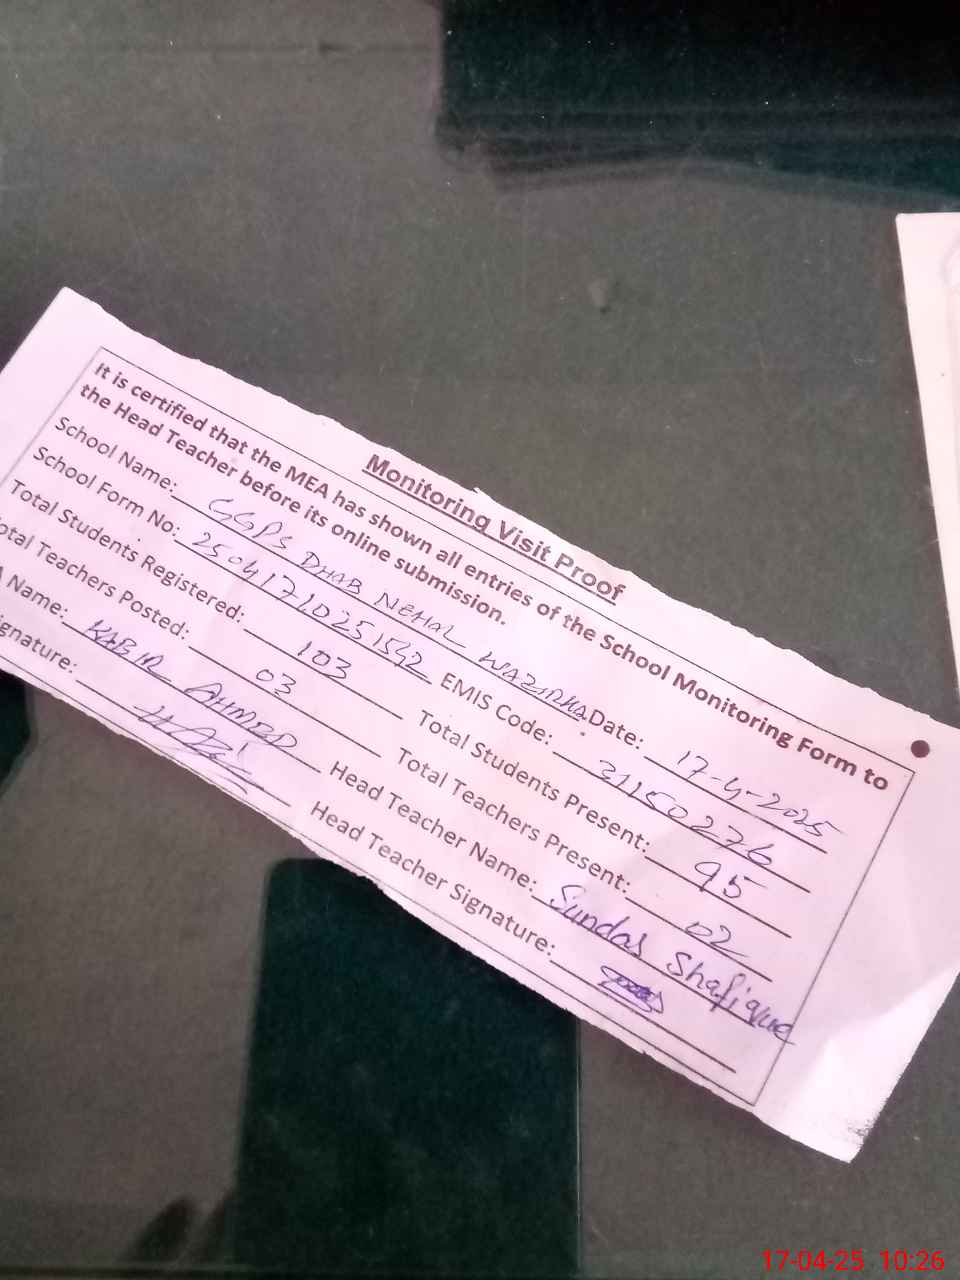 Monitoring Visit Proof
It is certified that the MEA has shown all entries of the School Monitoring Form to
the Head Teacher before its online submission.
School Name: GGPS DHAB NEHAL WAZIRKA Date: 17-4-2025
School Form No: 25041710251542 EMIS Code: 31150276
Total Students Registered: 103 Total Students Present: 95
otal Teachers Posted: 03 Total Teachers Present: 02
A Name: KABIR AHMED Head Teacher Name: Sundas Shafique
ignature: Head Teacher Signature:
17-04-25 10:26